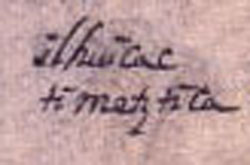 ilhuicac
timetztica